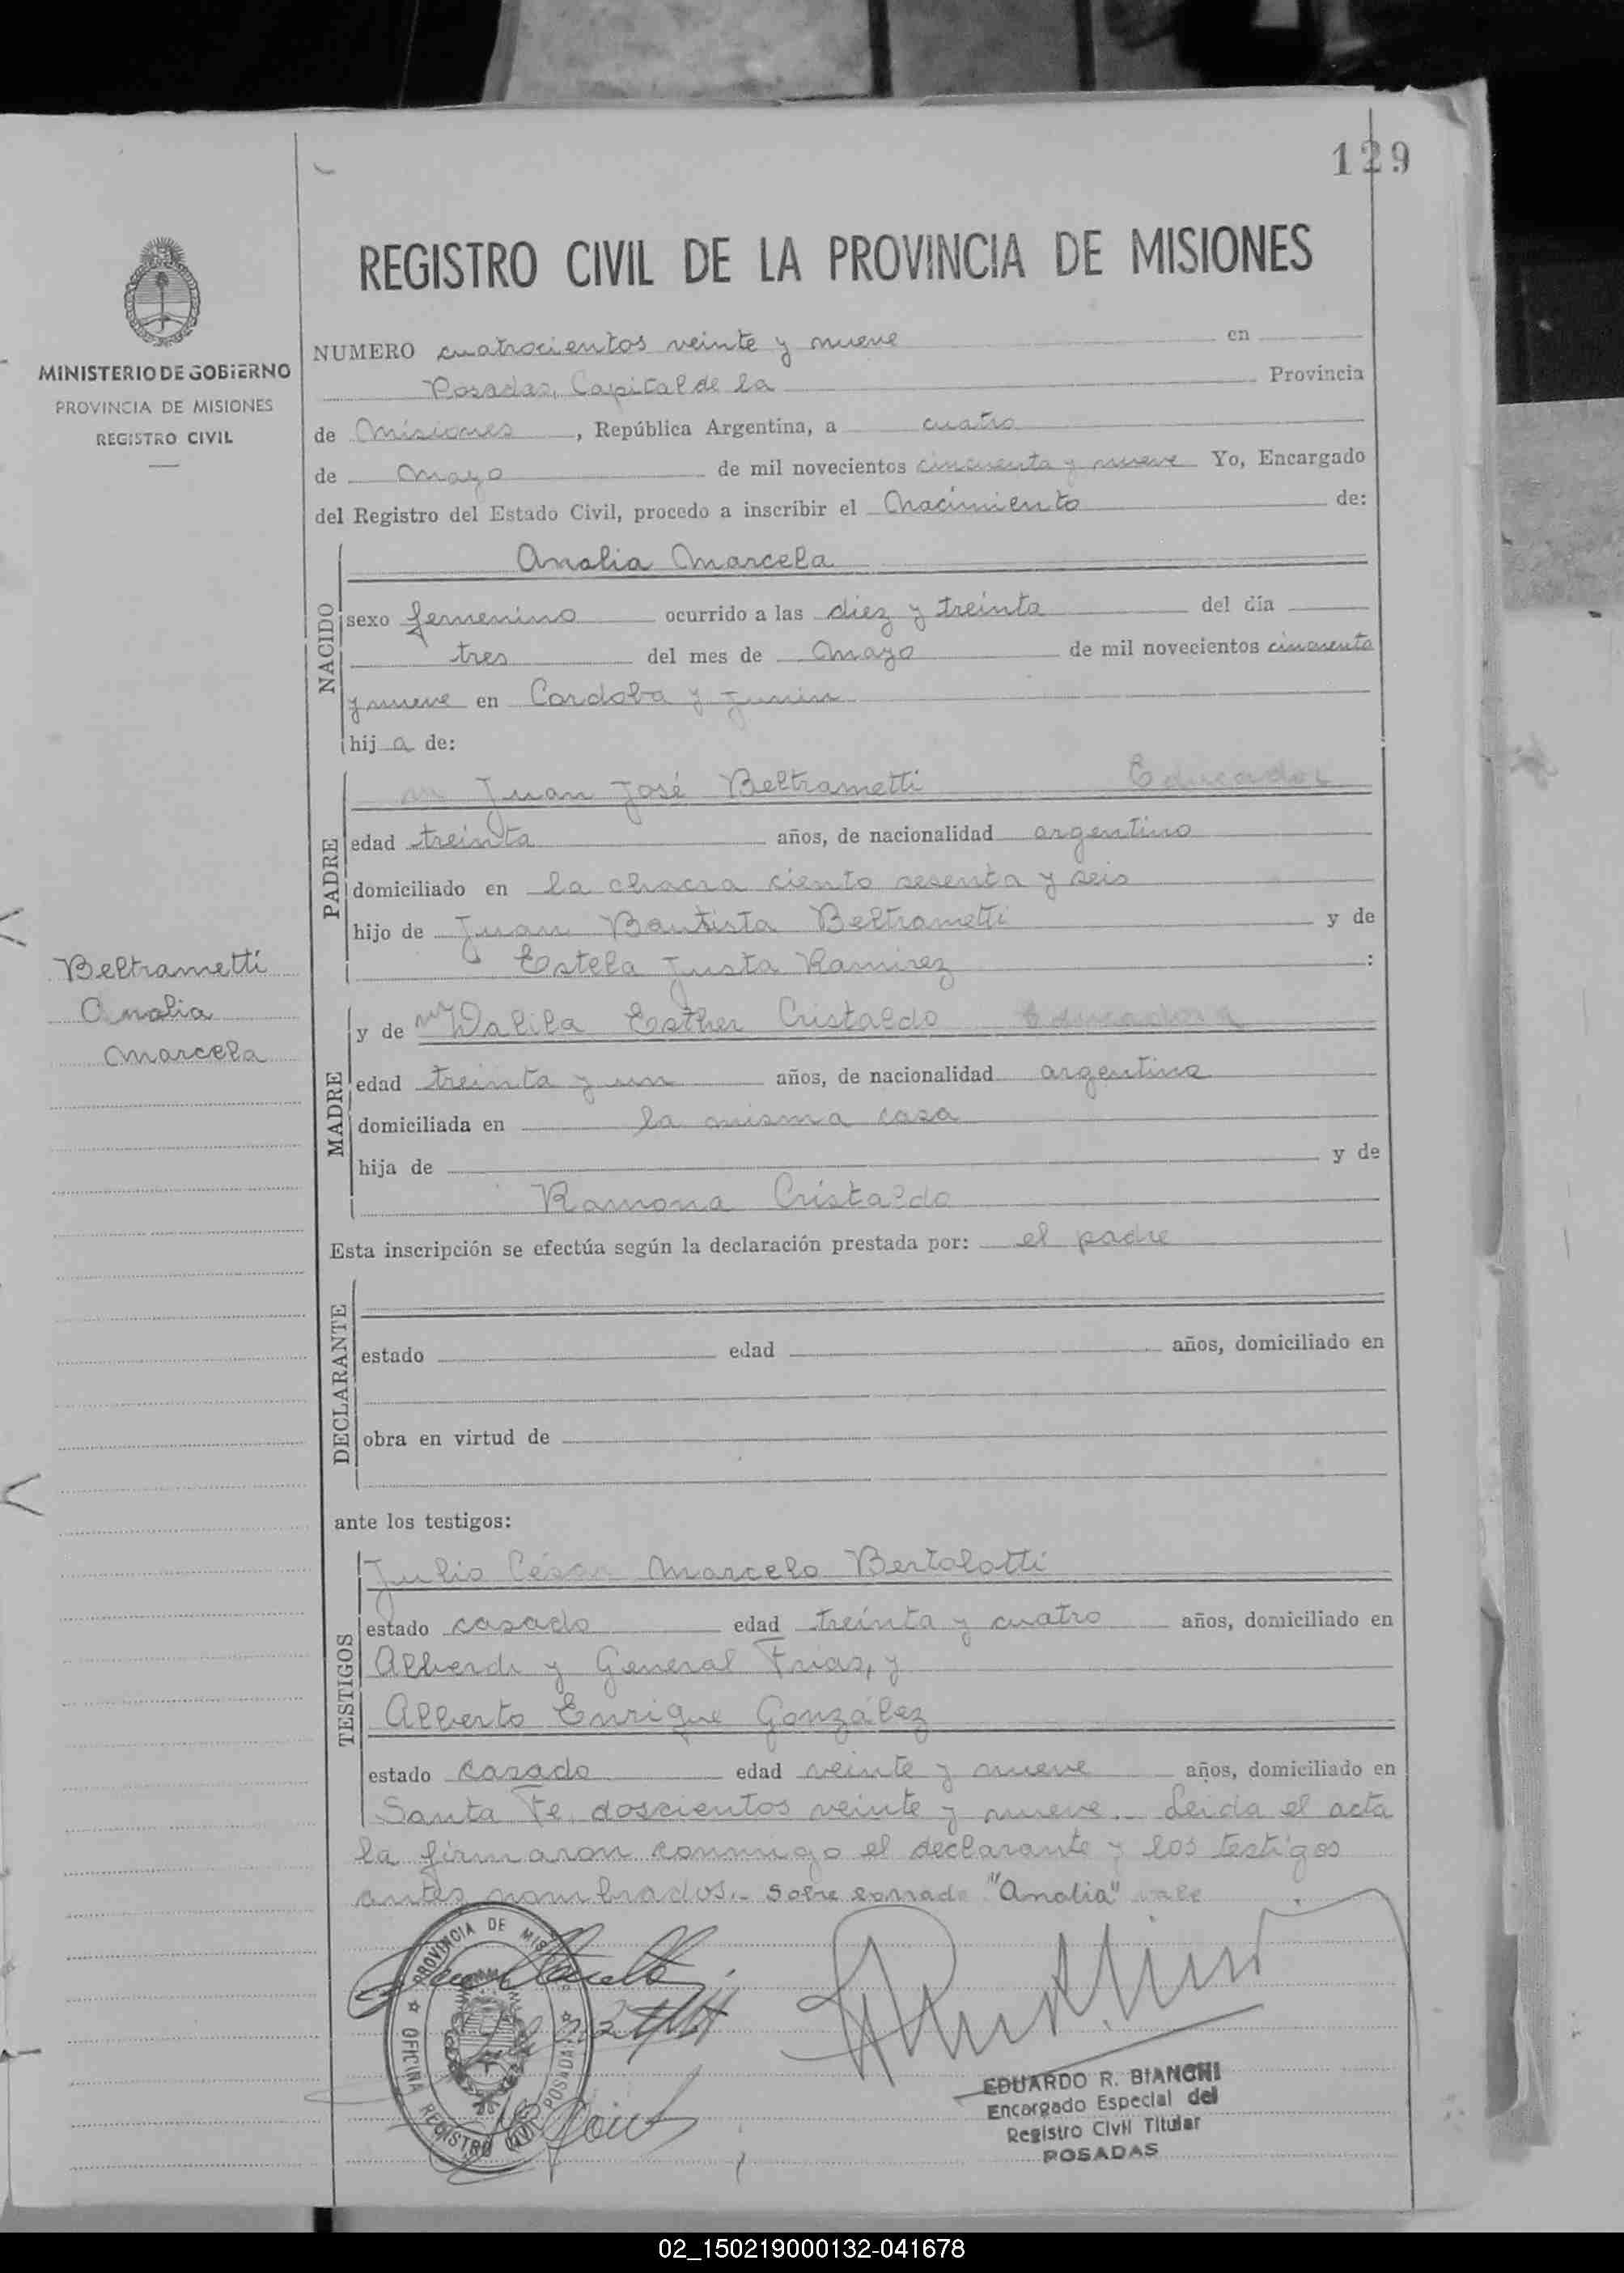 129
REGISTRO CIVIL DE LA PROVINCIA DE MISIONES
MINISTERIO DE GOBIERNO
PROVINCIA DE MISIONES
REGISTRO CIVIL
NUMERO cuatrocientos veinte y nueve en
Posadas, Capital de la Provincia
de Misiones, República Argentina, a cuatro
de Mayo de mil novecientos cincuenta y nueve Yo, Encargado
del Registro del Estado Civil, procedo a inscribir el Nacimiento de:
NACIDO
Analia Marcela
sexo femenino ocurrido a las diez y treinta del día
tres del mes de Mayo de mil novecientos cincuenta
y nueve en Cordoba y Junin
hij a de:
PADRE
Juan José Beltrametti Educador
edad treinta años, de nacionalidad argentino
domiciliado en la chacra ciento sesenta y seis
hijo de Juan Bautista Beltrametti y de
Estela Justa Ramirez :
Beltrametti
Analia
Marcela
MADRE
y de Dalila Esther Cristaldo Educadora
edad treinta y un años, de nacionalidad argentina
domiciliada en la misma casa
hija de y de
Ramona Cristaldo
Esta inscripción se efectúa según la declaración prestada por: el padre
DECLARANTE
estado edad años, domiciliado en
obra en virtud de
ante los testigos:
TESTIGOS
Julio César Marcelo Bertolotti
estado casado edad treinta y cuatro años, domiciliado en
Alberdi y General Frias, y
Alberto Enrique González
estado casado edad veinte y nueve años, domiciliado en
Santa Fe, doscientos veinte y nueve.- Leida el acta
la firmaron conmigo el declarante y los testigos
antes nombrados.- Sobre borrado "Analia" vale
PROVINCIA DE MIS
OFICINA REGISTRO CIVIL POSADAS
EDUARDO R. BIANCHI
Encargado Especial del
Registro Civil Titular
POSADAS
02_150219000132-041678